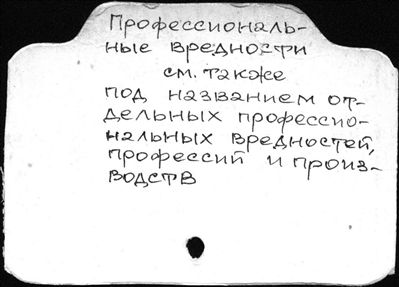 Профессиональ-
ные вредности
см. также
под названием от-
дельных профессио-
нальных вредностей,
профессий и произ-
водств